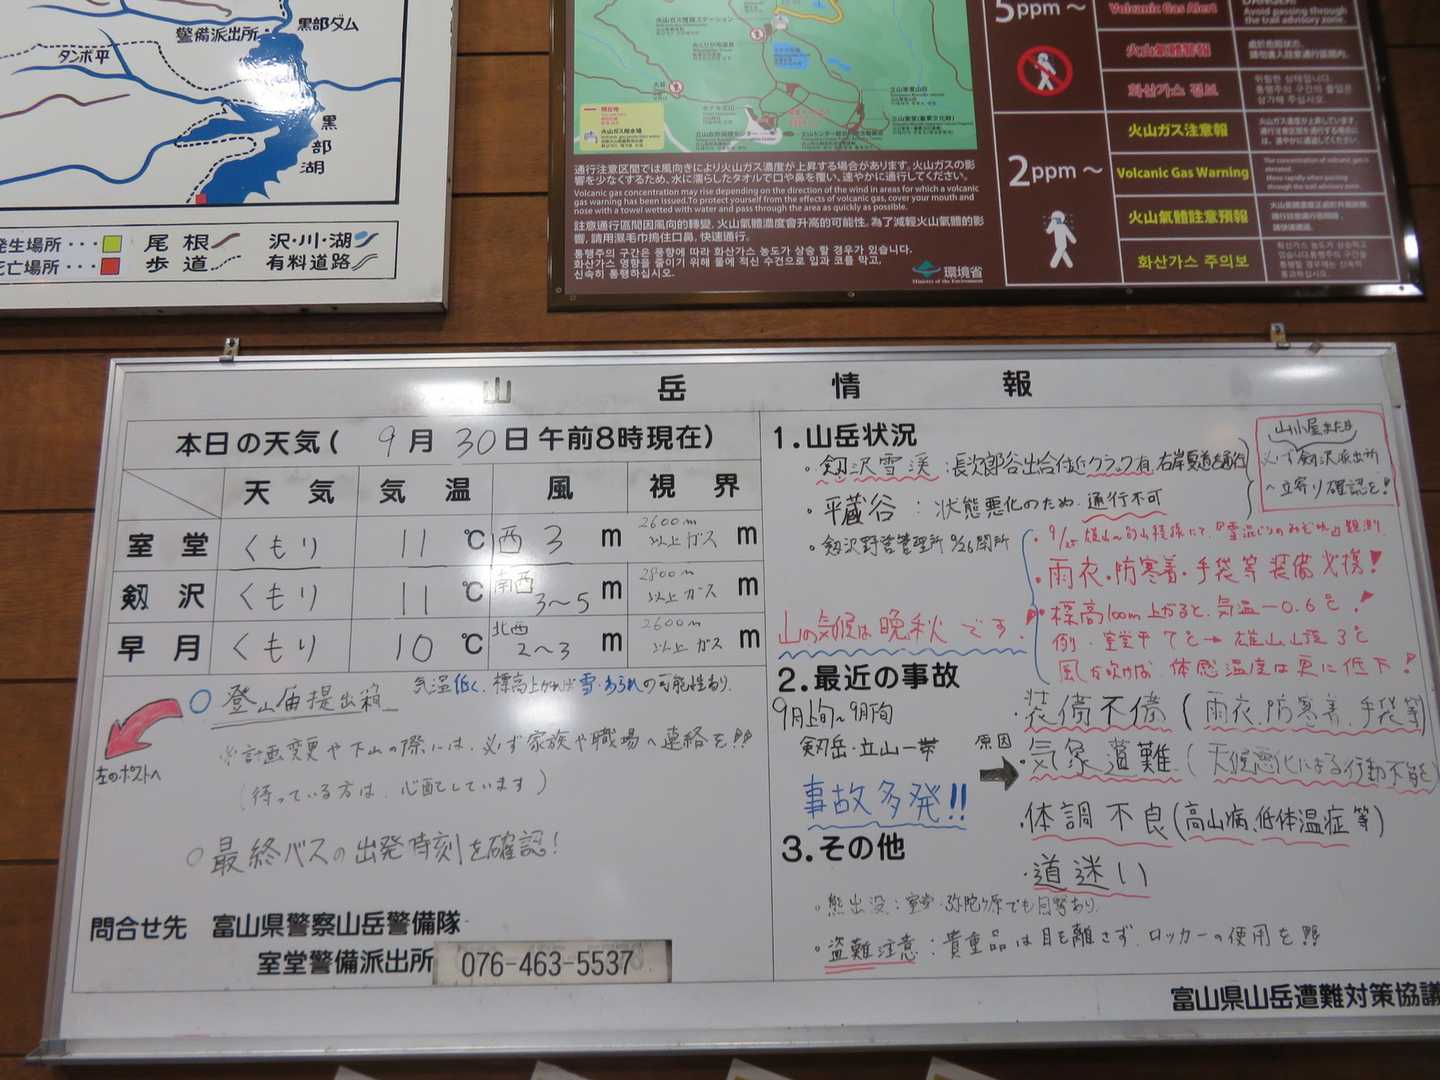 警備派出所
黒部ダム
タンボ平
黒部湖
発生場所・・・
死亡場所・・・
尾根
歩道
沢・川・湖
有料道路
通行注意区間では風向きにより火山ガス濃度が上昇する場合があります。火山ガスの影
響を少なくするため、水に濡らしたタオルで口や鼻を覆い、速やかに通行してください。
Volcanic gas concentration may rise depending on the direction of the wind in areas for which a volcanic
gas warning has been issued.To protect yourself from the effects of volcanic gas, cover your mouth and
nose with a towel wetted with water and pass through the area as quickly as possible.
註意通行區間因風向的轉變，火山氣體濃度會升高的可能性，為了減輕火山氣體的影
響，請用濕毛巾摀住口鼻，快速通行。
통행주의 구간은 풍향에 따라 화산가스 농도가 상승 할 경우가 있습니다.
화산가스 영향을 줄이기 위해 물에 적신 수건으로 입과 코를 막고,
신속히 통행하십시오.
環境省
Ministry of the Environment
5ppm～
Volcanic Gas Alert
Avoid passing through
the trail advisory zone.
火山氣體警報
화산가스 경보
2ppm～
火山ガス注意報
Volcanic Gas Warning
火山氣體註意預報
화산가스 주의보
山岳情報
本日の天気（9月30日午前8時現在）
天気 気温 風 視界
室堂 くもり 11℃ 西 3m 2600m以上ガス m
剱沢 くもり 11℃ 南西 3～5m 2800m以上ガス m
早月 くもり 10℃ 北西 2～3m 2600m以上ガス m
気温低く、標高上がれば雪・あられの可能性あり。
○登山届提出箱
左のポストへ
※計画変更や下山の際には、必ず家族や職場へ連絡を!!
（待っている方は、心配しています）
○最終バスの出発時刻を確認!
問合せ先 富山県警察山岳警備隊
室堂警備派出所 076-463-5537
1.山岳状況
・剱沢雪渓：長次郎谷出合付近クラック有、右岸夏道を通行
・平蔵谷：状態悪化のため、通行不可
・剱沢野営管理所 9/26閉所
山小屋または
必ず剱沢派出所
へ立寄り確認を!
山の気候は晩秋です!
・雨衣・防寒着・手袋等装備必携!
・標高100m上がると、気温-0.6℃!
例．室堂平7℃→雄山山頂3℃
風が吹けば、体感温度は更に低下!
2.最近の事故
9月上旬～9月下旬
剱岳・立山一帯
事故多発!!
原因
・装備不備（雨衣、防寒着、手袋等）
・気象遭難（天候悪化による行動不能等
・体調不良（高山病、低体温症等）
・道迷い
3.その他
・熊出没：室堂・弥陀ヶ原でも目撃あり。
・盗難注意：貴重品は目を離さず、ロッカーの使用を!!
富山県山岳遭難対策協議